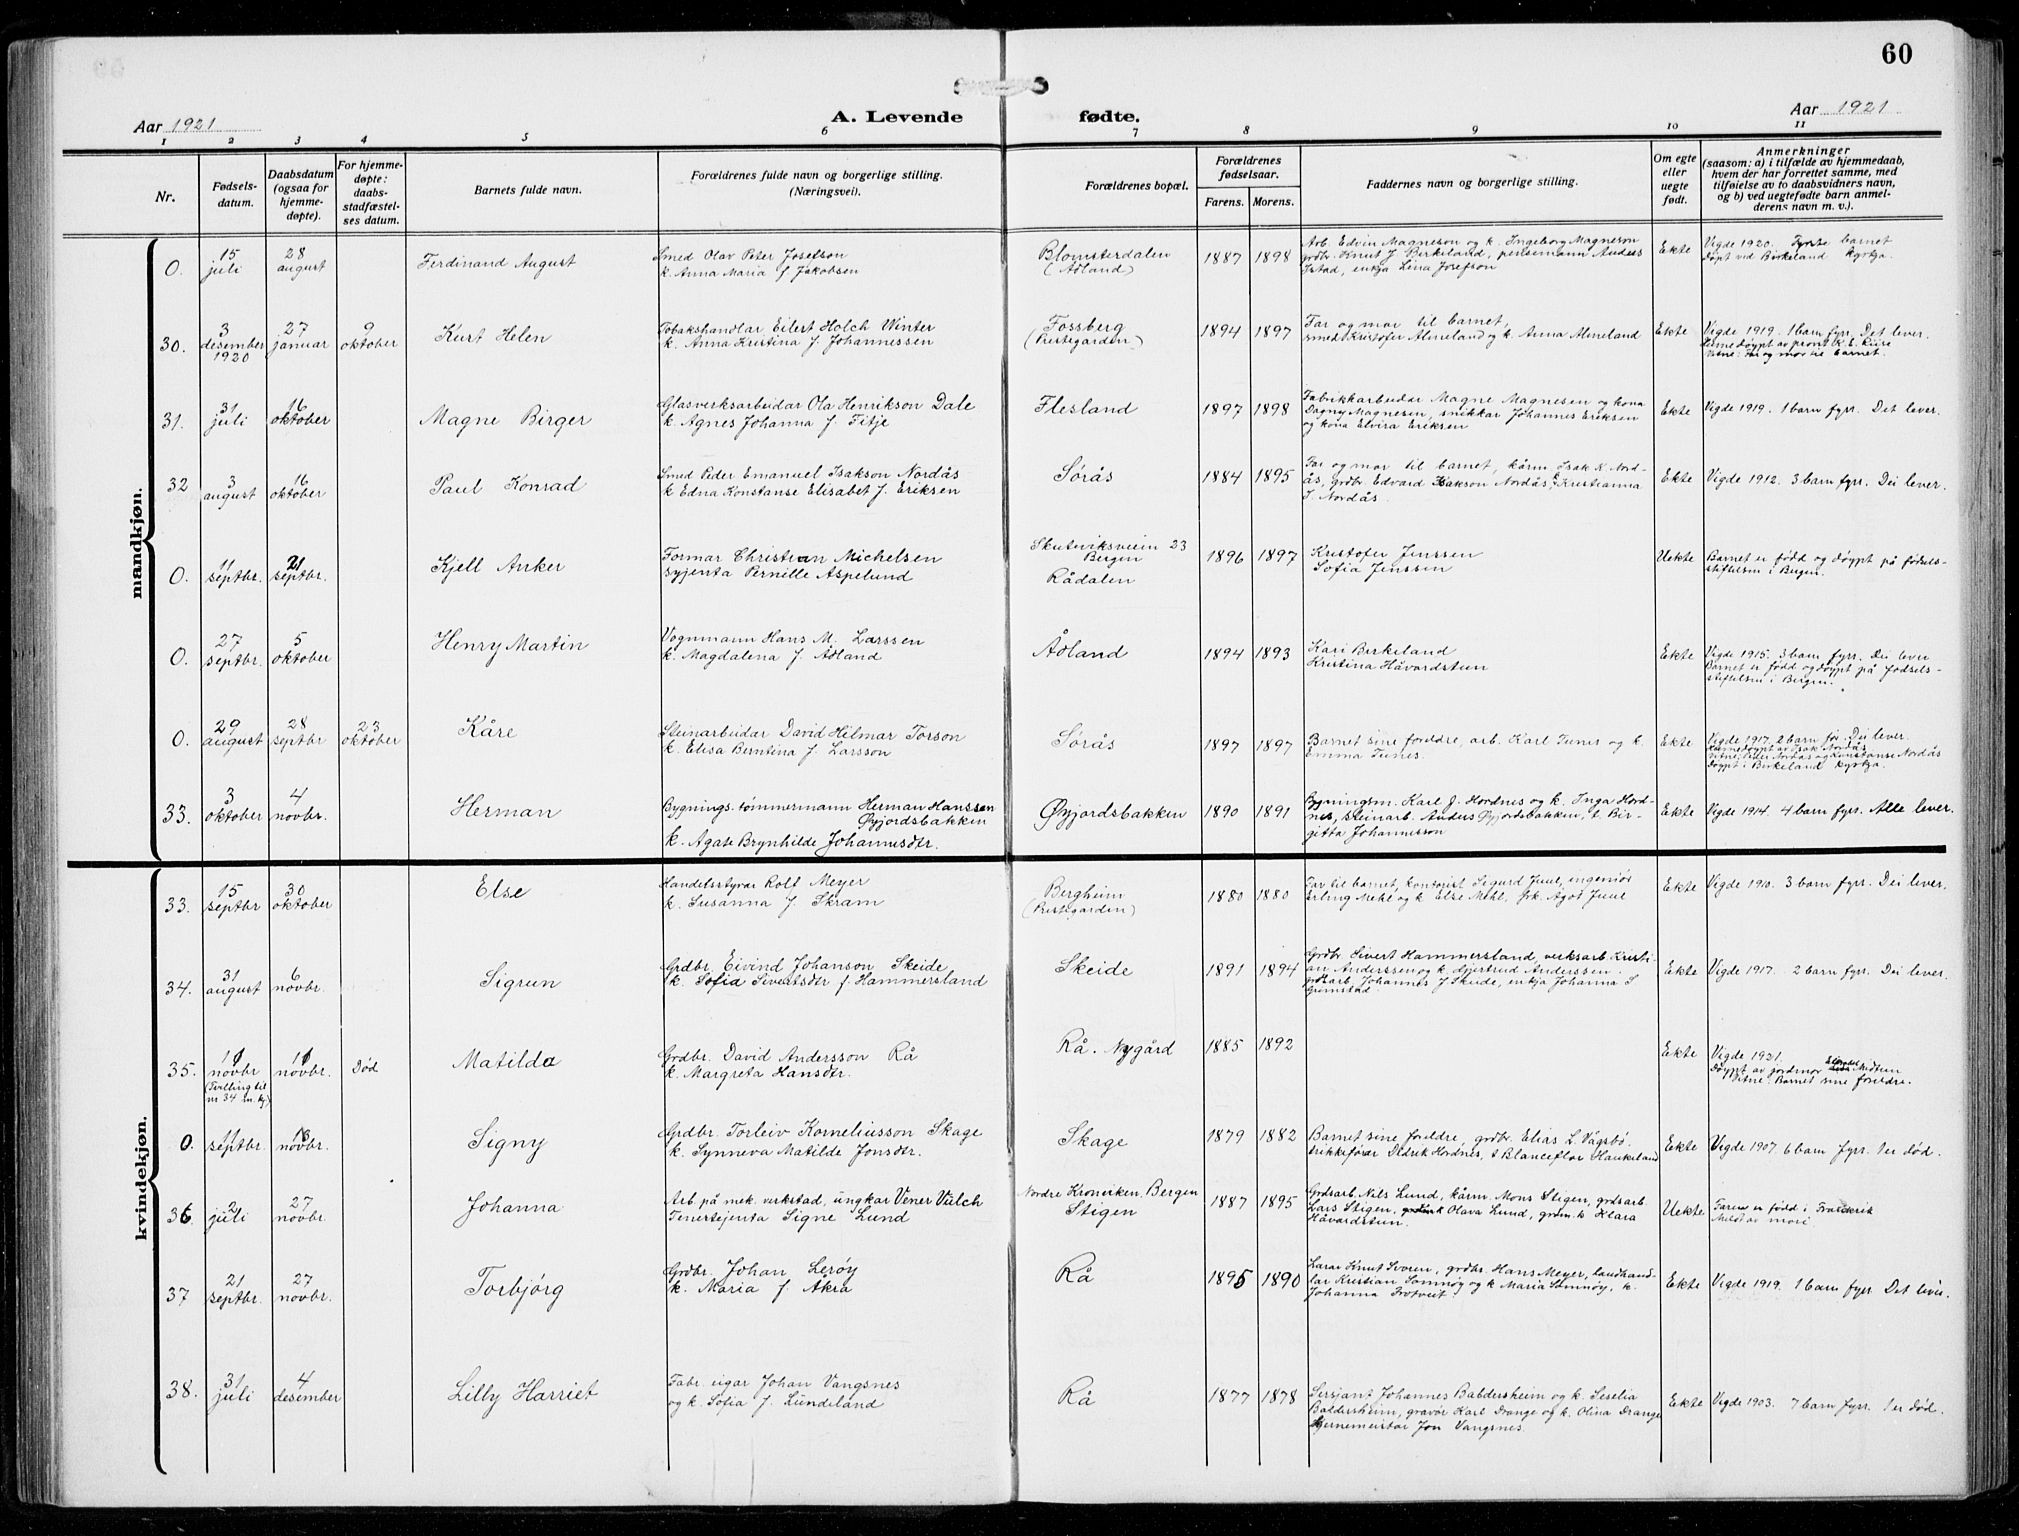 60
Aar 1921
A. Levende fødte.
Aar 1921
1 2 3 4 5 6 7 8 9 10 11
Nr.
Fødsels-
datum.
Daabsdatum
(ogsaa for
hjemme-
døpte).
For hjemme-
døpte:
daabs-
stadfæstel-
ses datum.
Barnets fulde navn.
Forældrenes fulde navn og borgerlige stilling.
(Næringsvei).
Forældrenes bopæl.
Forældrenes
fødselsaar.
Farens. Morens.
Faddernes navn og borgerlige stilling.
Om egte
eller
uegte
født.
Anmerkninger
(saasom: a) i tilfælde av hjemmedaab,
hvem der har forrettet samme, med
tilføielse av to daabsvidners navn,
og b) ved uegtefødte barn anmel-
derens navn m. v.).
mandkjøn.
0.
15
juli
28
august
Ferdinand August
Smed Olav Peter Josefson
k. Anna Maria f Jakobsen
Blomsterdalen
(Ådland)
1887 1898
Arb. Edvin Magneson og k. Ingeborg Magneson
grdbr. Knut J Birkeland, pensemann Anders
Ystad, enkja Lina Josefson
Ekte
Vigde 1920. Fyrste barnet
døpt ved Birkeland kyrkja.
30.
3
desember
1920
27
januar
9
oktober
Kurt Helen
Tobakshandlar Eilert Holch Winter
k. Anna Kristina f. Johannessen
Fossberg
(Prestegarden)
1894 1897
Far og mor til barnet,
smed Kristofer Alneland og k. Anna Alneland
Ekte
Vigde 1919. 1 barn fyrr. Det lever.
Heimedøypt av prost K. E. Riise
Vitne: Far og mor til barnet.
31.
31
juli
16
oktober
Magne Birger
Glasverksarbeidar Ola Henrikson Dale
k. Agnes Johanna f. Titje
Flesland
1897 1898
Fabrikkarbeidar Magne Magnesen og kona
Dagny Magnesen, snikkar Johannes Eriksen
og kona Elvira Eriksen
Ekte
Vigde 1919. 1 barn fyrr. Det lever.
32
3
august
16
oktober
Paul Konrad
Smed Peder Emanuel Isakson Nordås
k Edna Konstanse Elisabet f. Eriksen
Sørås
1884 1895
Far og mor til barnet, kårm. Isak K. Nord-
ås, grdbr Edvard Isakson Nordås, Kristianna
I. Nordås.
Ekte
Vigde 1912. 3 barn fyrr. Dei lever.
0.
11
septbr.
21
septbr.
Kjell Anker
Formar Christian Michelsen
syjenta Pernille Aspelund
Skuteviksveien 23
Bergen
Rådalen
1896 1897
Kristofer Jenssen
Sofia Jenssen
Uekte
Barnet er fødd og døypt på fødsels-
stiftelsen i Bergen.
0.
27
septbr.
5
oktober
Henry Martin
Vognmann Hans M. Larssen
k. Magdalena f. Ådland
Ådland
1894 1893
Kari Birkeland
Kristina Håvardstun
Ekte
Vigde 1915. 3 barn fyrr. Dei lever
Barnet er fødd og døypt på fødsels-
stiftelsen i Bergen.
0.
29
august
28
septbr
23
oktober
Kåre
Steinarbeidar David Hilmar Torson
k. Elisa Berntina f. Larsson
Sørås
1897 1897
Barnet sine foreldre, arb. Karl Tunes og k.
Emma Tunes.
Ekte
Vigde 1917. 2 barn før. Dei lever.
Heimedøypt av Isak Nordås
Vitne: Peder Nordås og Konstanse Nordås
Døypt i Birkeland kyrkja.
33.
3
oktober
4
novbr.
Herman
Bygnings. tømmermann Herman Hanssen
Øyjordsbakken
k. Agate Brynhilde Johannesdtr.
Øyjordsbakken
1890 1891
Bygningsm. Karl J. Hordnes og k. Inga Hord-
nes, steinarb. Anders Øyjordsbakken, t. Bir-
gitta Johannesson
Ekte
Vigde 1914. 4 barn fyrr. Alle lever.
kvindekjøn.
33.
15
septbr
30
oktober
Else
Handelsstyrar Rolf Meyer
k. Susanna f. Skram
Bergheim
(Prestegarden)
1880 1880
Far til barnet, kontorist Sigurd Juul, ingeniør
Erling Mehl og k Else Mehl, frk. Agot Juul
Ekte
Vigde 1910. 3 barn fyrr. Dei lever.
34.
31
august
6
novbr.
Sigrun
Grdbr. Eivind Johanson Skeide
k. Sofia Sivertsdtr f. Hammersland
Skeide
1891 1894
Grdbr Sivert Hammersland, verksarb. Kristi-
an Anderssen og k. Gjertrud Anderssen.
grdarb. Johannes J Skeide, enkja Johanna S
Grimstad.
Ekte
Vigde 1917. 2 barn fyrr. Dei lever.
35.
novbr
(Tvilling til
nr 34 m. kj)
novbr.
Død
Matilda
Grdbr. David Andersson Rå
k. Margreta Hansdtr.
Rå. Nygård
1885 1892
Ekte
Vigde 1921.
Døypt av jordmor Midtun
Vitne: Barnet sine foreldre.
0.
11
septbr.
13
novbr.
Signy
Grdbr. Torleiv Korneliusson Skage
k. Synneva Matilde Jonsdtr.
Skage
1879 1882
Barnet sine foreldre, grdbr. Elias L. Vågsbø.
trikkeførar Didrik Hordnes, t Blanceflor Haukeland
Ekte
Vigde 1907. 6 barn fyrr. 1 er død.
36.
2
juli
27
novbr.
Johanna
Arb. på mek. verkstad, ungkar Vener Valch
Tenestejenta Signe Lund
Nordre Kroneviken, Bergen
Stigen
1887 1895
Grdsarb. Nils Lund, kårm. Mons Stigen, grdsarb
Lars Stigen, k Olava Lund, grdm. k Klara
Håvardstun.
Uekte
Faren er fødd i Fredrik
Meldt av mori
37
21
septbr.
27
novbr.
Torbjørg
Grdbr. Johan Lerøy
k. Maria f. Åkra
Rå
1895 1890
Lærar Knut Svoren, grdbr. Hans Meyer, landhand-
lar Kristian Sømnøy og k Maria Sømnøy, k.
Johanna Trotveit.
Ekte
Vigde 1919. 1 barn fyrr Det lever.
38.
31
juli
4
desember
Lilly Harriet
Fabr. eigar Johan Vangsnes
og k. Sofia f. Lundeland
Rå
1877 1878
Sersjant Johannes Baldersheim og k. Seselia
Baldersheim, gravør Karl Drange og k. Olina Drange
Gjernemeistar Jon Vangsnes.
Ekte
Vigde 1903. 7 barn fyrr. 1 er død.